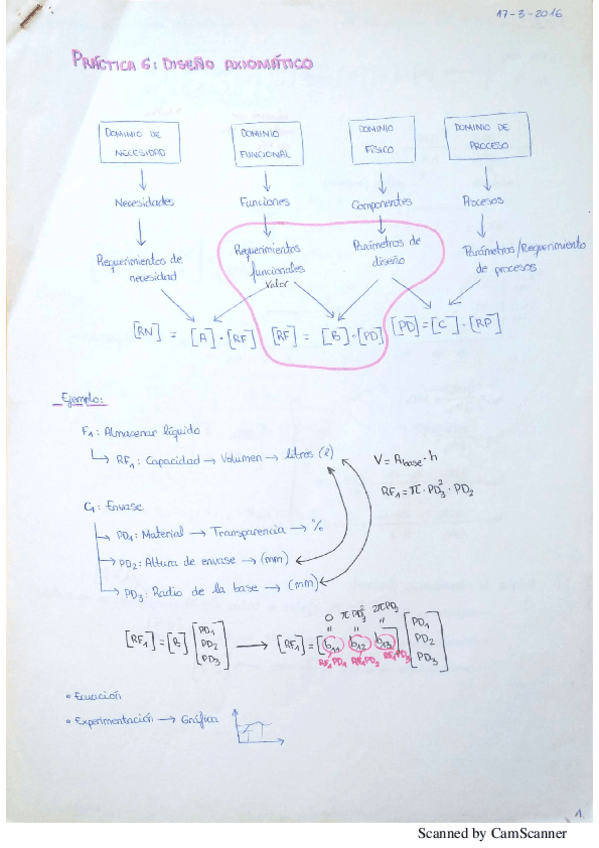 17-3-2016
PRÁCTICA 6: DISEÑO AXIOMÁTICO
DOMINIO DE NECESIDAD
DOMINIO FUNCIONAL
DOMINIO FÍSICO
DOMINIO DE PROCESO
Necesidades
Funciones
Componentes
Procesos
Requerimientos de necesidad
Requerimientos funcionales
valor
Parámetros de diseño
Parámetros/Requerimiento de procesos
[RN] = [A]·[RF]
[RF] = [B]·[PD]
[PD]=[C]·[RP]
Ejemplo:
F1: Almacenar líquido
RF1: Capacidad → Volumen → litros (l)
V = Abase · h
RF1 = π · PD3² · PD2
C1: Envase
PD1: Material → Transparencia → %
PD2: Altura de envase → (mm)
PD3: Radio de la base → (mm)
0 πPD3² 2πPD3
" " "
[RF1] = [B] [PD1 PD2 PD3] → [RF1] = [b11 b12 b13] [PD1 PD2 PD3]
RF1PD1 RF1PD2 RF1PD3
• Ecuación
• Experimentación → Gráfica
1.
Scanned by CamScanner